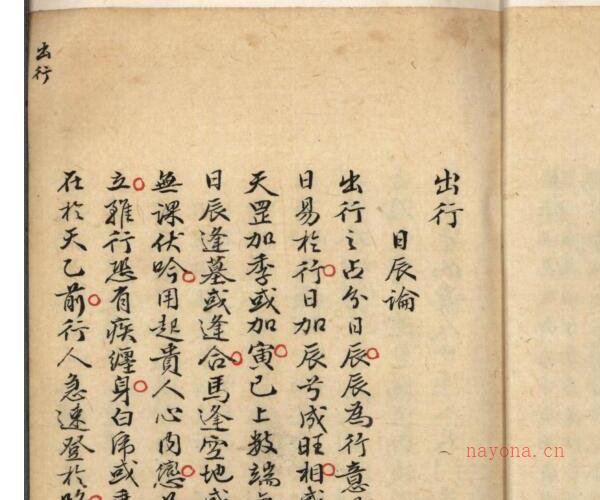 出行
出行
日辰論
出行之占分日辰辰為行意
日易於行日加辰兮成旺相
天罡加季或加寅已上数端
日辰逢墓或逢合馬逢空地或
無課伏吟用起貴人心內戀
立雖行恐有疾纏身白虎或
在於天乙前行人急速登於
nayona.cn